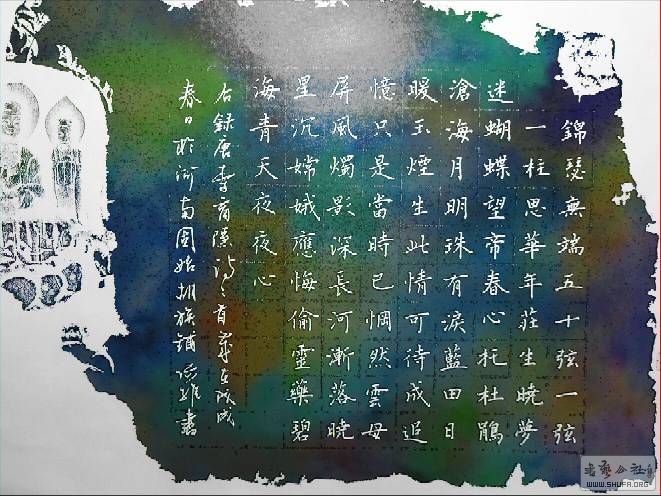 錦瑟無端五十弦一弦
一柱思華年莊生曉夢
迷蝴蝶望帝春心托杜鵑
滄海月明珠有淚藍田日
暖玉煙生此情可待成追
憶只是當時已惘然雲母
屏風燭影深長河漸落曉
星沉嫦娥應悔偷靈藥碧
海青天夜夜心
右錄唐李商隱詩二首歲在戊戌
春日於河南固始胡族鋪
WWW.SHUFA.ORG